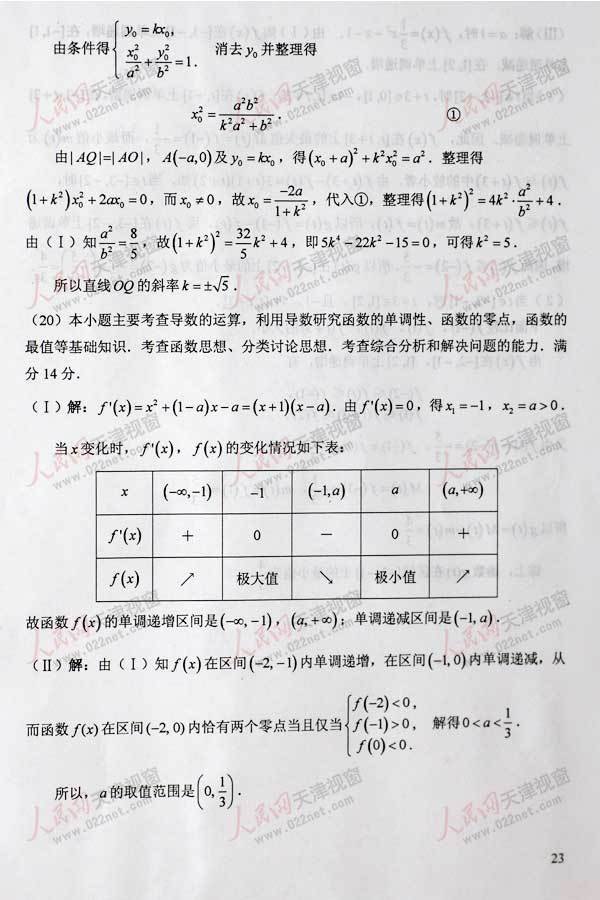 由条件得 { y₀ = kx₀, x₀²/a² + y₀²/b² = 1. 消去 y₀ 并整理得
x₀² = a²b²/(k²a² + b²). ①
由|AQ|=|AO|, A(−a,0)及 y₀ = kx₀, 得(x₀ + a)² + k²x₀² = a². 整理得
(1+k²)x₀² + 2ax₀ = 0, 而 x₀ ≠ 0, 故 x₀ = −2a/(1+k²), 代入①, 整理得(1+k²)² = 4k²·a²/b² + 4.
由(Ⅰ)知 a²/b² = 8/5, 故(1+k²)² = 32/5 k² + 4, 即5k⁴ − 22k² − 15 = 0, 可得 k² = 5.
所以直线OQ的斜率 k = ±√5.
(20) 本小题主要考查导数的运算，利用导数研究函数的单调性、函数的零点，函数的
最值等基础知识．考查函数思想、分类讨论思想．考查综合分析和解决问题的能力．满
分 14 分．
(Ⅰ)解: f'(x) = x² + (1−a)x − a = (x+1)(x−a). 由 f'(x) = 0, 得 x₁ = −1, x₂ = a > 0.
当x变化时, f'(x), f(x)的变化情况如下表:
x (−∞,−1) −1 (−1,a) a (a,+∞)
f'(x) + 0 − 0 +
f(x) ↗ 极大值 ↘ 极小值 ↗
故函数 f(x)的单调递增区间是(−∞,−1), (a,+∞); 单调递减区间是(−1,a).
(Ⅱ)解: 由(Ⅰ)知 f(x)在区间(−2,−1)内单调递增, 在区间(−1,0)内单调递减, 从
而函数 f(x)在区间(−2,0)内恰有两个零点当且仅当 { f(−2)<0, f(−1)>0, f(0)<0. 解得0<a<1/3.
所以, a的取值范围是(0, 1/3).
23
人民网天津视窗
www.022net.com